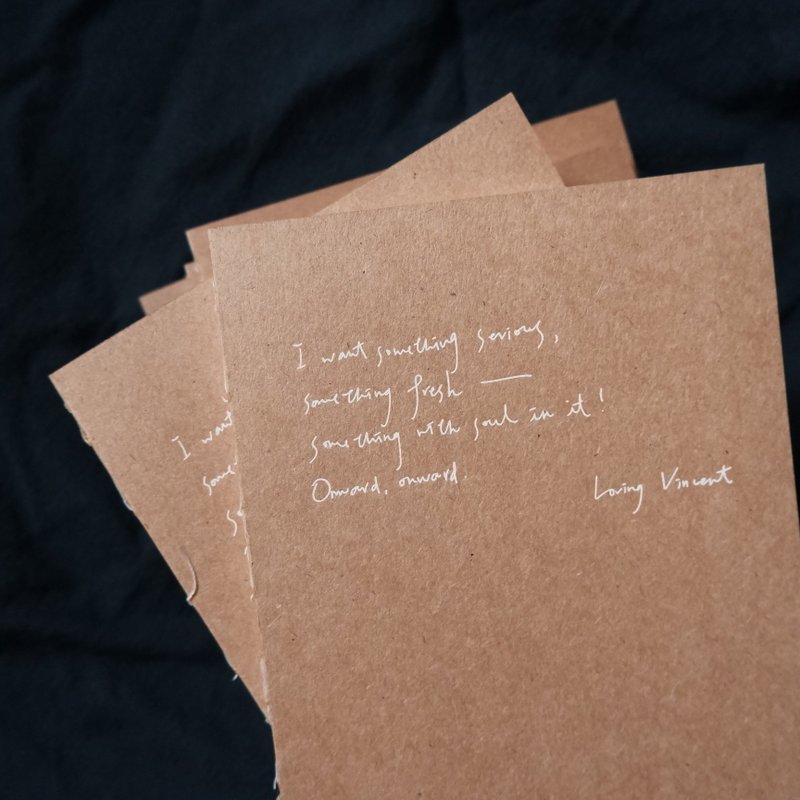 I want something serious,
something fresh —
something with soul in it!
Onward, onward.
Loving Vincent
I want
some
so